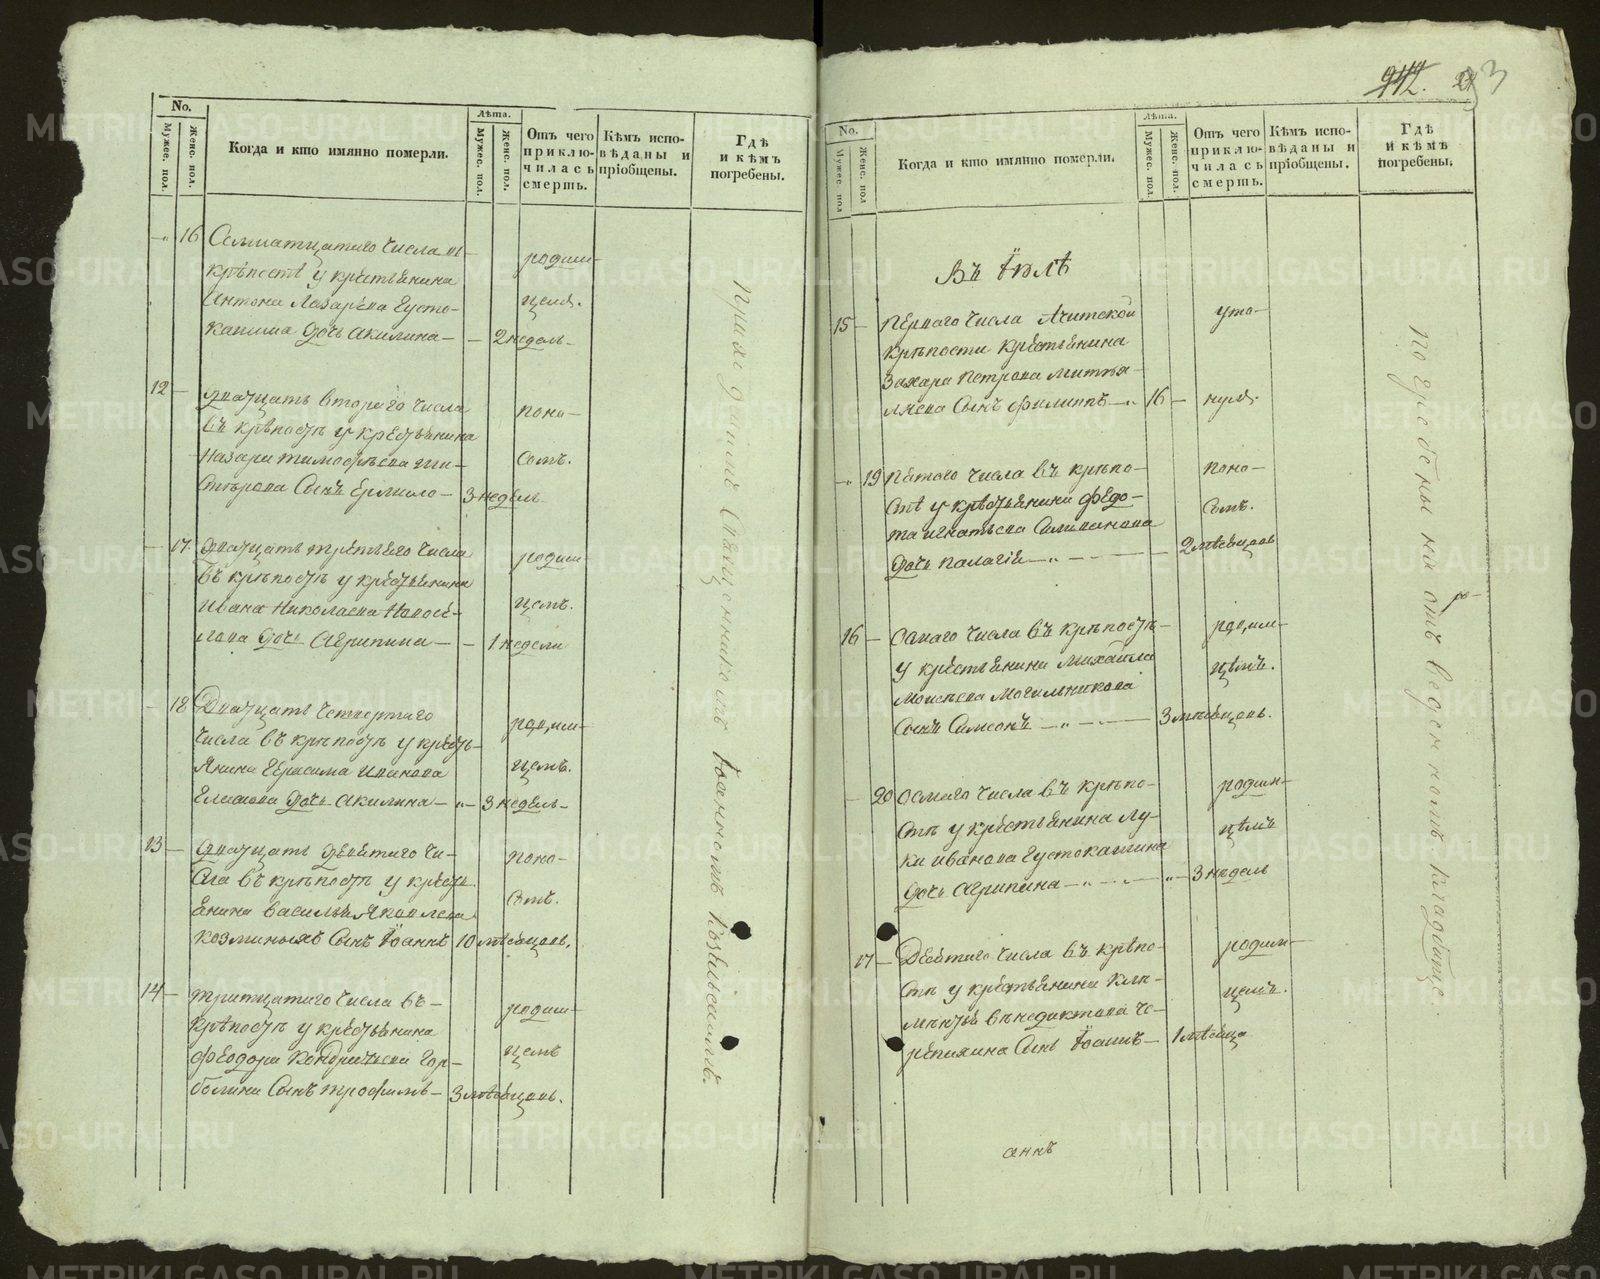 No.
Мужес. пол.
Женс. пол.
Когда и кто имянно померли.
Лѣта.
Мужес. пол.
Женс. пол.
Отъ чего приклю-чилась смерть.
Кѣмъ испо-вѣданы и прiобщены.
Гдѣ и кѣмъ погребены.
16 числа въ
крѣпостѣ у крестьянина
Антона Лазарева Густо-
кашина дочь Акилина — 2 недѣль
родим-
цемъ.
12 — Двадцать втораго числа
въ крѣпостѣ у крестьянина
Назара Тимофѣева
сынъ Ермило — 3 недѣль
поно-
сомъ.
17 Двадцать третьяго числа
въ крѣпостѣ у крестьянина
Ивана Николаева Новосе-
лова дочь Агрипина — 1 недели
родим-
цемъ.
18 Двадцать четвертаго
числа въ крѣпостѣ у кресть-
янина Герасима Иванова
дочь Акилина — 3 недѣль
родим-
цемъ.
13 — Двадцать девятаго чи-
сла въ крѣпостѣ у кресть-
янина Василья Яковлева
Козминыхъ сынъ Іоаннъ 10 мѣсяцовъ.
поно-
сомъ.
14 — Тритцатаго числа въ
крѣпостѣ у крестьянина
Феодора Кондратьева Гор-
болина сынъ Трофимъ — 3 мѣсяцовъ.
родим-
цемъ
Священникомъ Іоанномъ
942. 93
No.
Мужес. пол.
Женс. пол
Когда и кто имянно померли.
Лѣта.
Мужес. пол.
Женс. пол.
Отъ чего приклю-чилась смерть.
Кѣмъ испо-вѣданы и прiобщены.
Гдѣ и кѣмъ погребены.
Въ Іюлѣ
15 — Перваго числа Ачитской
крѣпости крестьянина
Захара Петрова
сынъ Филиппъ — 16 —
уто-
нулъ.
19 Пятаго числа въ крѣпо-
стѣ у крестьянина Федо-
та Игнатьева Селиванова
дочь Палагiя — 2 мѣсяцовъ
поно-
сомъ.
16 — Самаго числа въ крѣпостѣ
у крестьянина Михайла
Моисѣева Могильникова
сынъ Симеонъ — 3 мѣсяцовъ.
родим-
цемъ.
20 Осмаго числа въ крѣпо-
стѣ у крестьянина Лу-
ки Иванова Густокашина
дочь Агрипина — 3 недѣль
родим-
цемъ
17 — Девятаго числа въ крѣпо-
стѣ у крестьянина Кли-
ментья Венедиктова Че-
репахина сынъ Іоаннъ — 1 мѣсяца
родим-
цемъ.
Погребены на отъведенномъ кладбище.
аннъ
METRIKI.GASO-URAL.RU